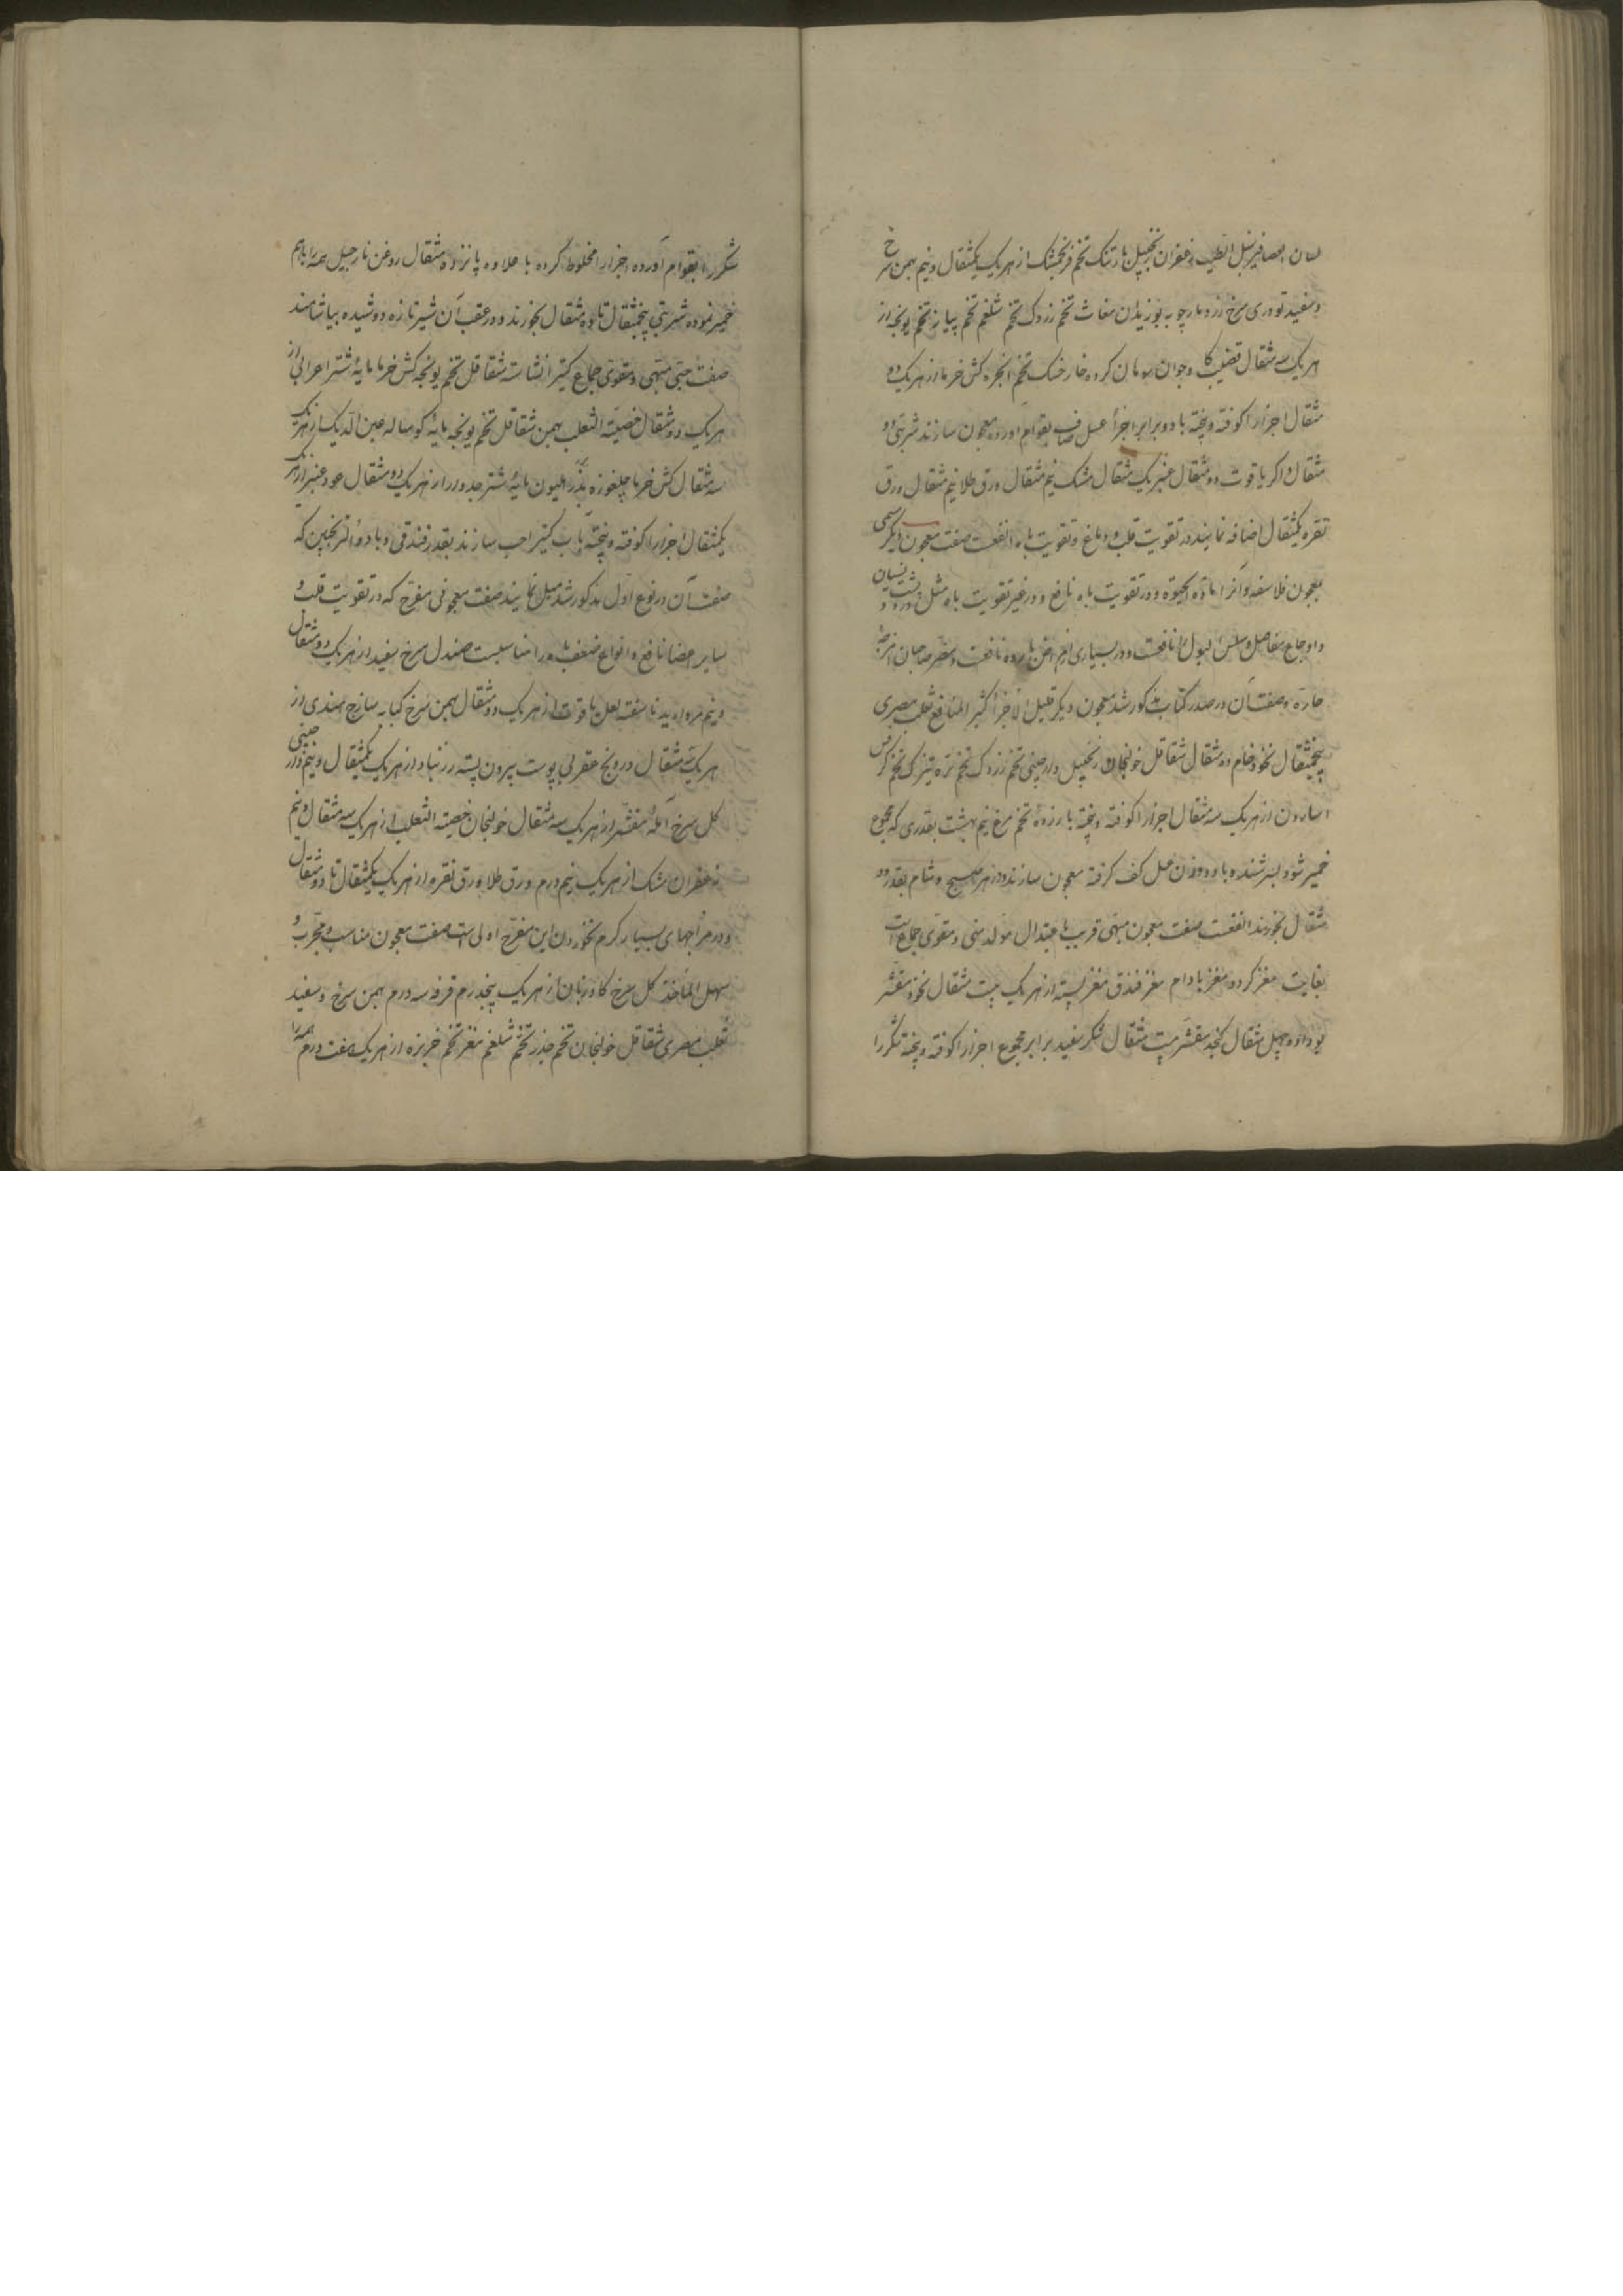 لسان العصافیر سنبل الطیب زعفران زنجبیل بارتنک تخم فرنجمشک از هر یک یکمثقال و نیم بهمن سرخ
و سفید تودری سرخ زرد مارچوبه بوزیدان مغاث تخم زردک تخم شلغم تخم پیاز تخم یونجه از
هر یک سه مثقال قضیب کاو جوان سوهان کرده خارخسک تخم انجره کش خرما از هر یک ده
مثقال اجزا را کوفته و بیخته با دو برابر اجزأ عسل صاف بقوام اورده معجون سازند شربتی دو
مثقال و اکر یاقوت دو مثقال عنبر یک مثقال مشک نیم مثقال ورق طلا نیم مثقال ورق
نقره یکمثقال اضافه نمایند در تقویت قلب و دماغ و تقویت باه انفعست صفت معجون دیکر مسمی
بمعجون فلاسفه و آنرا مادة الحیوة و در تقویت باه نافع و در غیر تقویت باه مثل نسیان
و اوجاع مفاصل و سلس البول را نافعست و در بسیاری از امراض بارده نافعست و مضر صاحبان امزجه
حاره و صفت آن در صدر کتاب مذکور شد معجون دیکر قلیل الاجزأ کثیر المنافع ثعلب مصری
پنجمثقال نخود خام ده مثقال شقاقل خولنجان زنجبیل دارچینی تخم زردک تخم تره تیزک تخم کرفس
اسارون از هر یک سه مثقال اجزا را کوفته و بیخته با زردۀ تخم مرغ نیم برشت بقدری که مجموع
خمیر شود بسرشند و با دو وزن عسل کف کرفته معجون سازند و در هر صبح و شام بقدر دو
مثقال بخورند انفعست صفت معجون مبهی قریب باعتدال مولد منی و مقوی جماع است
بغایت مغز کردو مغز بادام مغز فندق مغز پسته از هر یک بیست مثقال نخود مقشر
بو داده چهل مثقال کنجد مقشر بیست مثقال شکر سفید برابر مجموع اجزا را کوفته و بیخته شکر را
شکر را بقوام آورده اجزا را مخلوط کرده با علاوه پانزده مثقال روغن نارجیل همه را باهم
خمیر نموده شربتی پنجمثقال تا ده مثقال بخورند و در عقب آن شیر تازه دوشیده بیاشامند
صفت حبی مبهی و مقوی جماع کتیرا نشاسته شقاقل تخم یونجه کش خرما مایۀ شتر اعرابی از
هر یک دو مثقال خصیة الثعلب بهمن شقاقل تخم یونجه مایۀ کوساله از هر یک
سه مثقال کش خرما چلغوزه بذر هلیون مایۀ شتر جدوار از هر یک دو مثقال عود عنبر از هر یک
یکمثقال اجزا را کوفته و بیخته بآب کتیرا حب سازند بقدر فندقی و با دواء الترنجبین که
صفت آن در نوع اول مذکور شد میل نمایند صفت معجونی مفرح که در تقویت قلب و
سایر اعضا نافع و انواع ضعف باه را مناسبست صندل سرخ سفید از هر یک دو مثقال
و نیم مروارید ناسفته لعل یاقوت از هر یک دو مثقال بهمن سرخ کبابه ساذج هندی از
هر یک مثقال درونج عقربی پوست بیرون پسته زرنباد از هر یک یکمثقال و نیم دارچینی
کل سرخ آمله مقشر از هر یک سه مثقال خولنجان خصیة الثعلب از هر یک سه مثقال و نیم
زعفران مشک از هر یک نیم درم ورق طلا ورق نقره از هر یک یکمثقال تا دو مثقال
و در مزاجهای بسیار کرم نخوردن این مفرح اولی است صفت معجون مناسب و مجرب و
سهل المأخذ کل سرخ کاوزبان از هر یک پنجدرم قرفه سه درم بهمن سرخ و سفید
ثعلب مصری شقاقل خولنجان تخم جزر تخم شلغم مغز تخم خربزه از هر یک هفت درم همه را